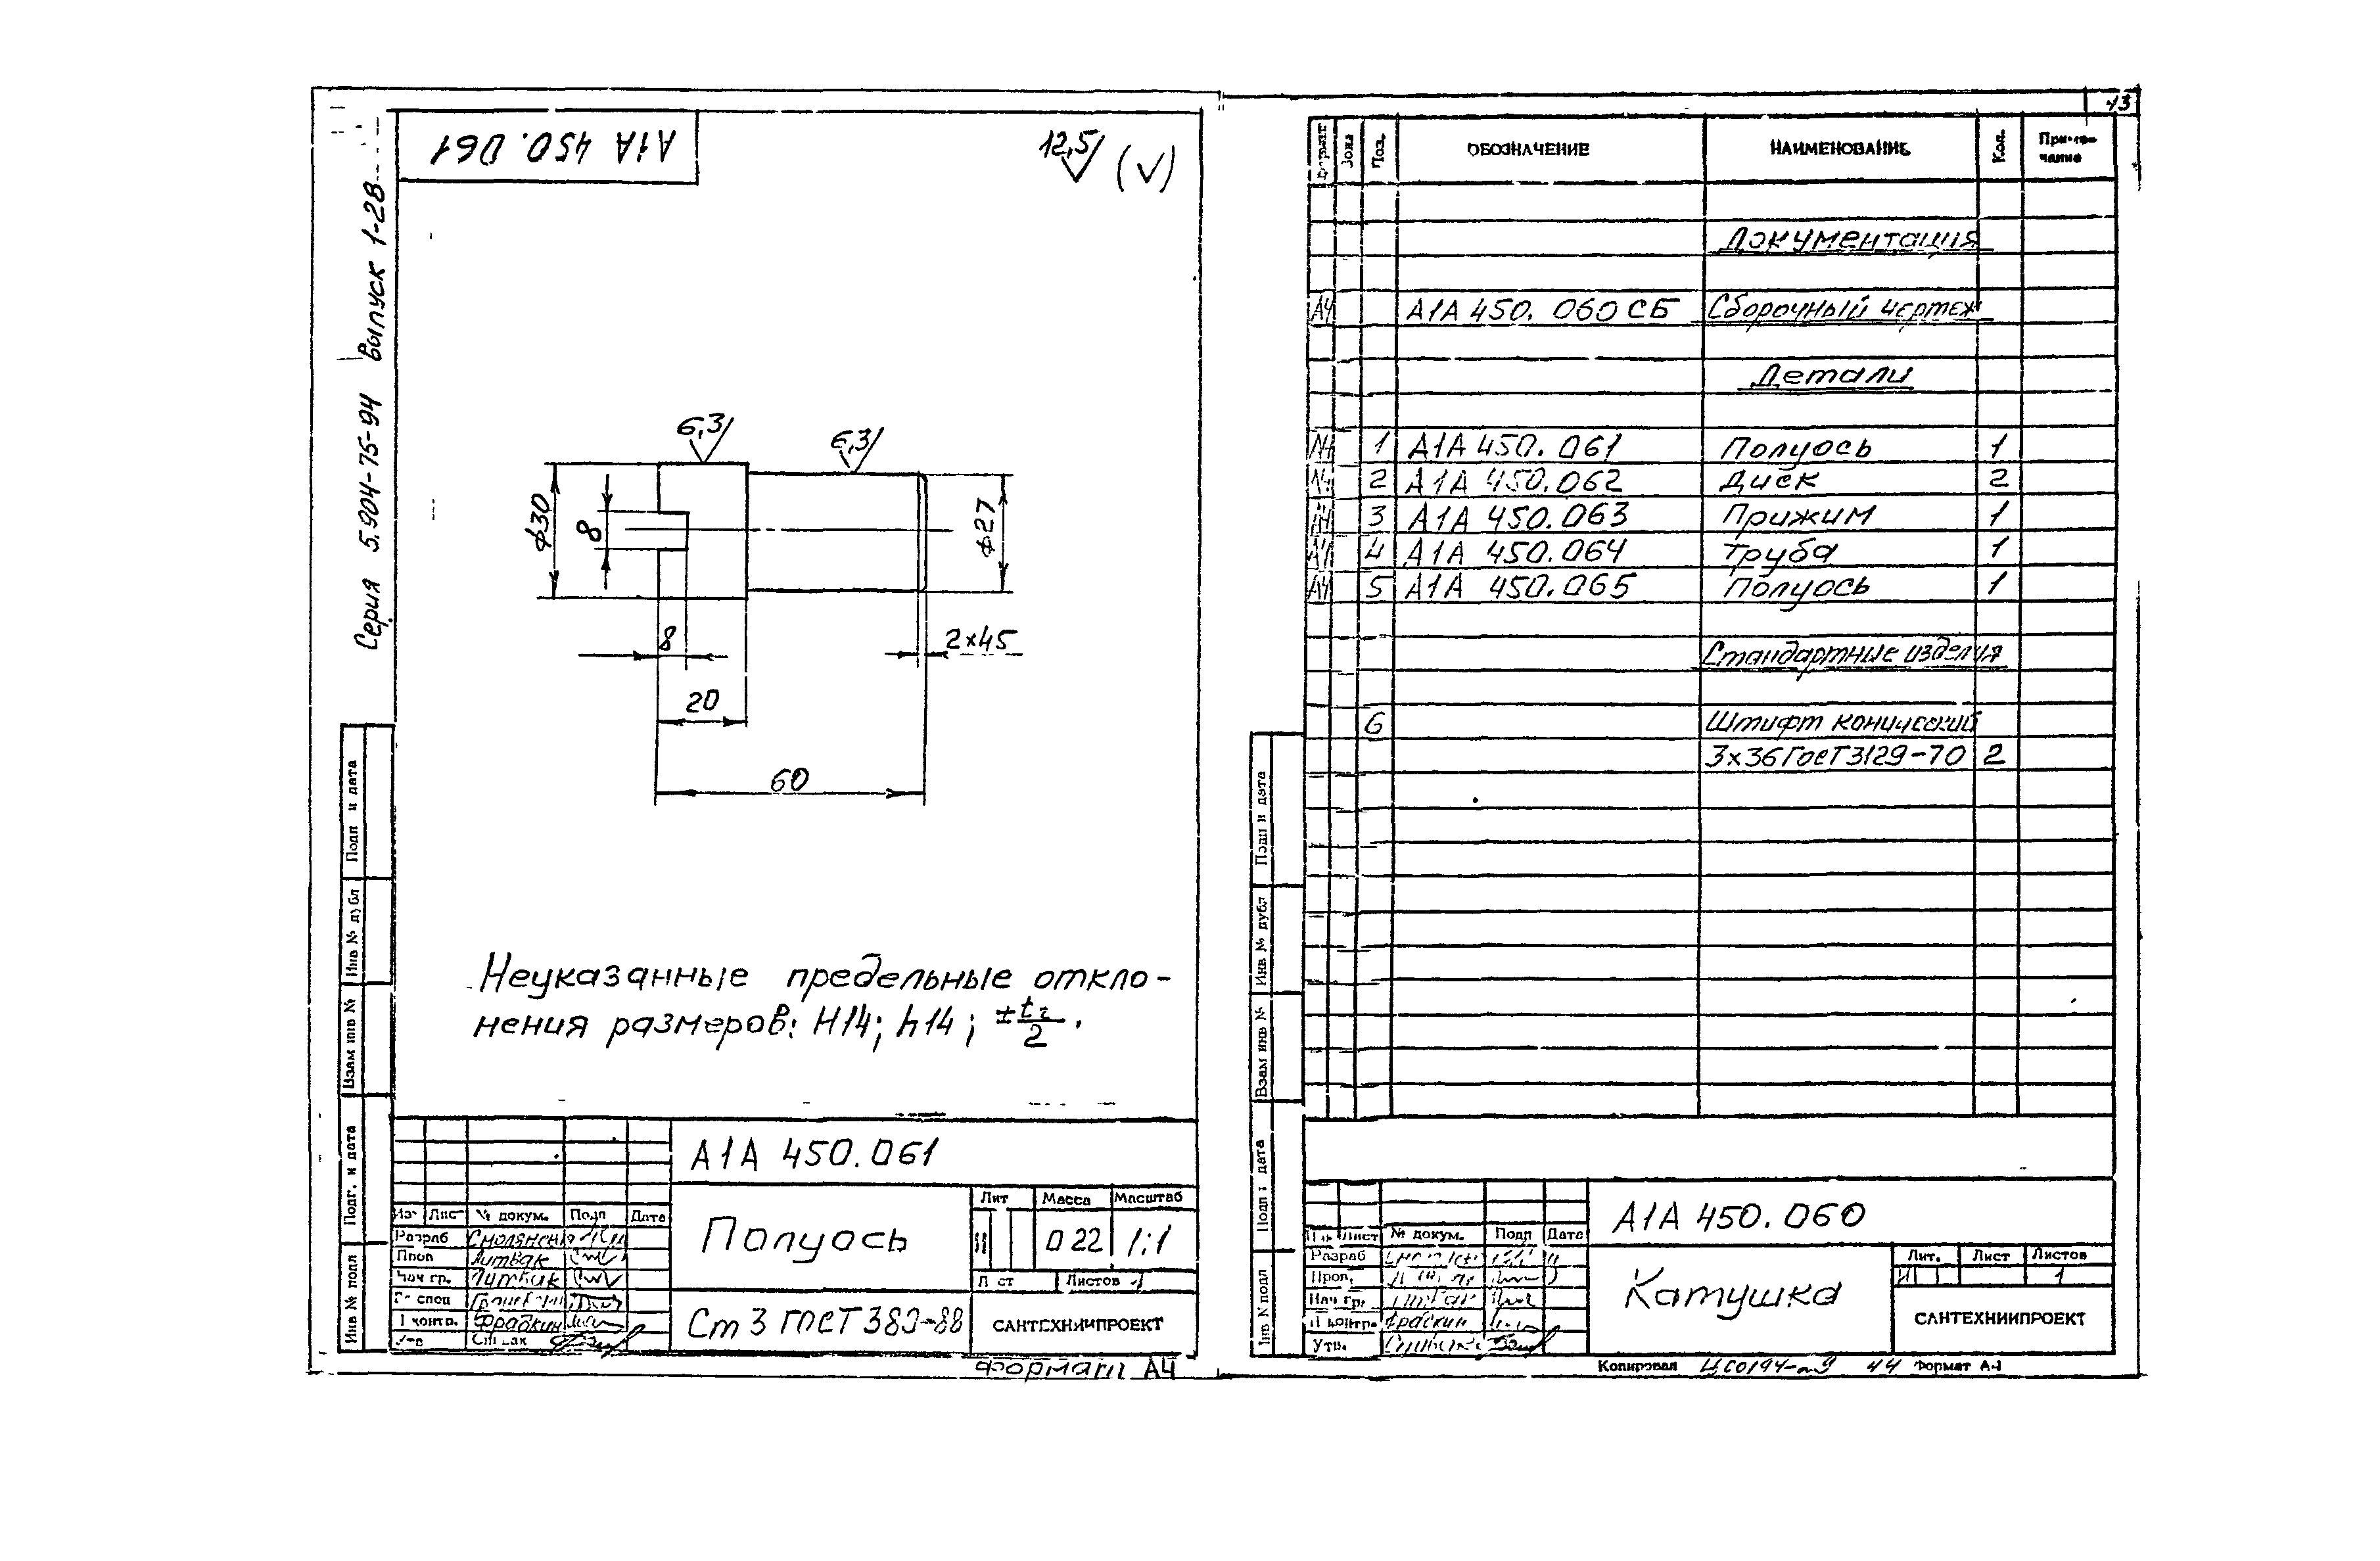 А1А 450.061
12,5 (√)
Серия 5.904-75-94 Выпуск 1-28
6,3 6,3
ϕ30
8
ϕ27
8
2×45
20
60
Неуказанные предельные откло-
нения размеров: H14; h14; ±t2/2.
Подп и дата
Инв № дубл
Взам инв №
Подп. и дата
Инв № подл
А1А 450.061
Лит Масса Масштаб
Лист № докум. Подп Дата
Полуось
0 22 1:1
Разраб
Проп Литвак
Нач гр. Литвак
Лист Листов 1
Гл спец
Н контр. Фрадкин
Утв
Ст 3 ГОСТ 380-88
САНТЕХНИИПРОЕКТ
Формат А4
43
Формат Зона Поз. ОБОЗНАЧЕНИЕ НАИМЕНОВАНИЕ Кол. Приме-
чание
Документация
А4 А1А 450. 060 СБ Сборочный чертеж
Детали
А4 1 А1А 450. 061 Полуось 1
А4 2 А1А 450.062 Диск 2
А4 3 А1А 450.063 Прижим 1
А4 4 А1А 450.064 Труба 1
А4 5 А1А 450.065 Полуось 1
Стандартные изделия
6 Штифт конический
3×36 ГОСТ 3129-70 2
Подп и дата
Инв № дубл
Взам инв №
Подп и дата
Инв N подл
А1А 450.060
Лист № докум. Подп Дата
Разраб
Проп.
Нач гр.
Н контр. Фрадкин
Утв.
Катушка
Лит. Лист Листов
И 1
САНТЕХНИИПРОЕКТ
Копировал 44 Формат А4